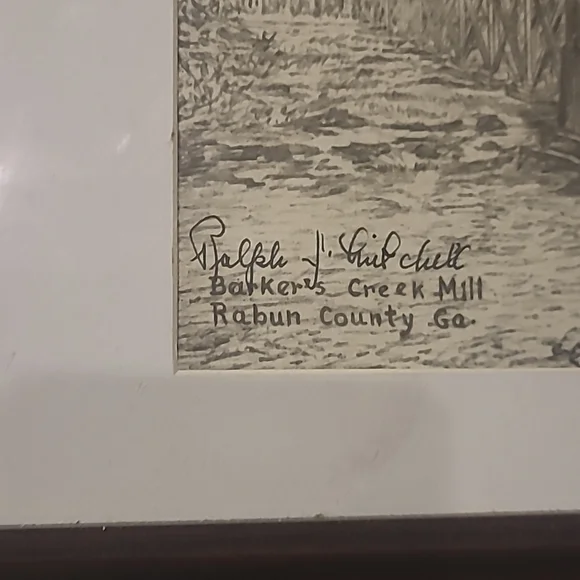 Ralph
Barker's Creek Mill
Rabun County Ga.